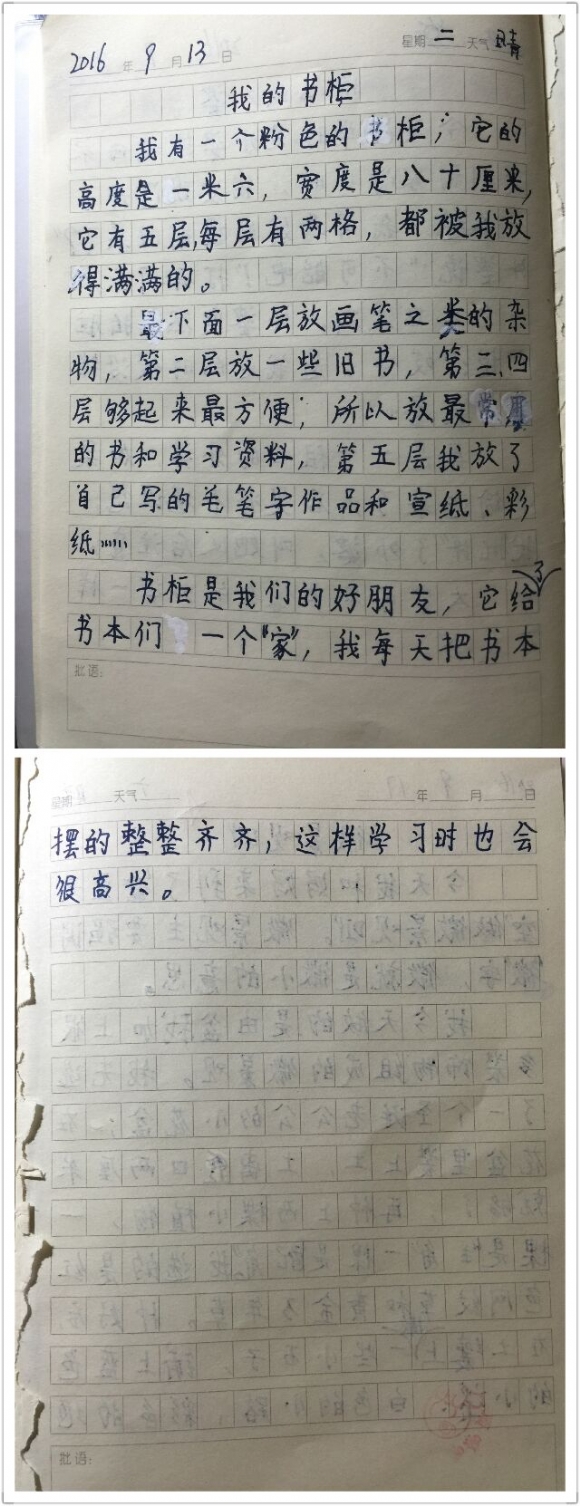 2016年9月13日 星期二 天气晴
我的书柜
我有一个粉色的书柜，它的
高度是一米六，宽度是八十厘米，
它有五层，每层有两格，都被我放
得满满的。
最下面一层放画笔之类的杂
物，第二层放一些旧书，第三、四
层够起来最方便，所以放最常用
的书和学习资料，第五层我放了
自己写的毛笔字作品和宣纸、彩
纸……
书柜是我们的好朋友，它给了
书本们一个“家”，我每天把书本
批语：
星期 天气 年 月 日
摆的整整齐齐，这样学习时也会
很高兴。
批语：